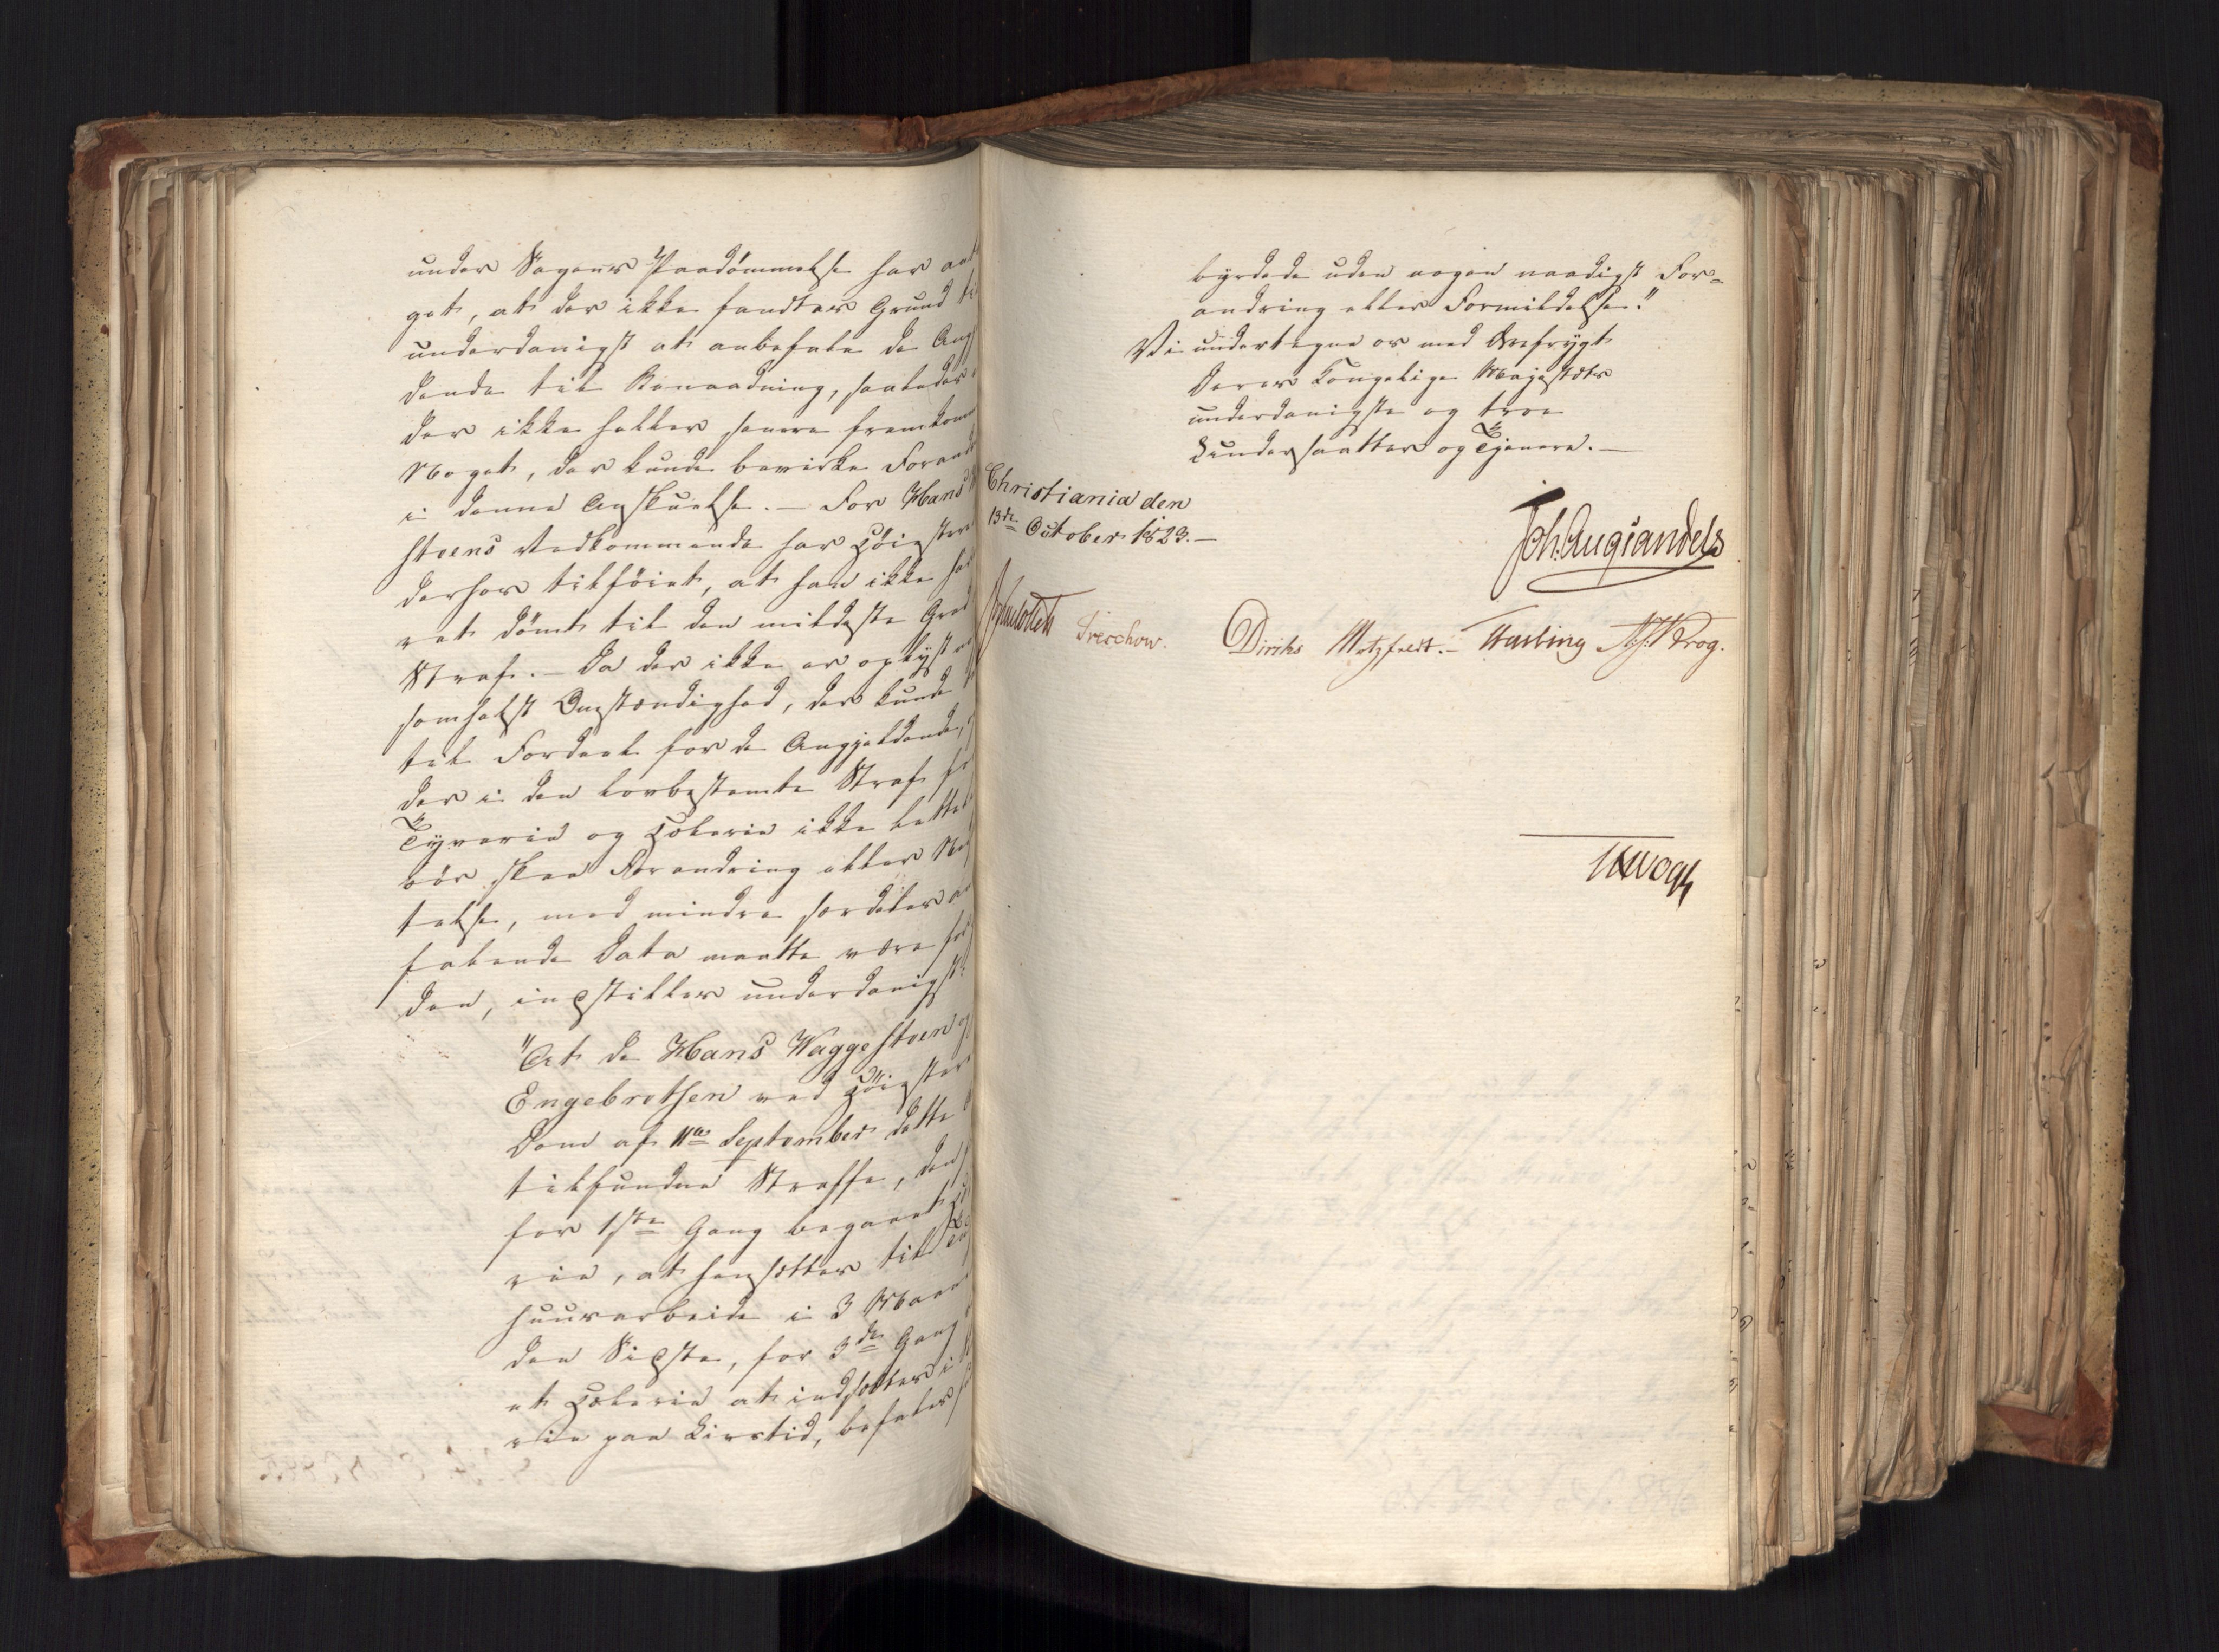 under Sagens Paadømmelse har an
get, at der ikke fandtes Grund til
underdanigst at anbefale de Ang
dende til Benaadning, saaledes
der ikke heller senere fremkom
Noget, der kunde bevirke Forand
i denne Anskuelse. — For Hans
stvens Vedkommende har Höieste
derhos tilföiet, at han ikke
ret dömt til den mildeste Grad
Straf. — Da der ikke er oplyst
somhelst Omstændighed, der kunde
tale til Fordeel for de Angjeldende,
der i den lovbestemte Straf for
Tyverie og Hæleri ikke lettel
bör skee Forandring eller
telse, med mindre særdeles
talende Data maatte være for
den, indstilles underdanigst:
"At de Hans Waggestven og
Engebretsen ved Höieste
Dom af 11te September dette
tilfundne Straffe, den
for 1ste Gang begaaet
rie, at hensættes til
huusarbeide i 3 Maan
den Sidste, for 3de Gang
et Hæleri at indsættes i
rie paa Livstid, befales
byrdede uden nogen naadigst For=
andring eller Formildelse."
Vi undertegne os med Ærefrygt
Deres Kongelige Majestæts
underdanigste og troe
Undersaatter og Tjenere. —
Christiania den
13de October 1823. —
Joh. Aug Sandels
Treschow.
Diriks Motzfeldt. — Fasting M: Krog.
Vogt